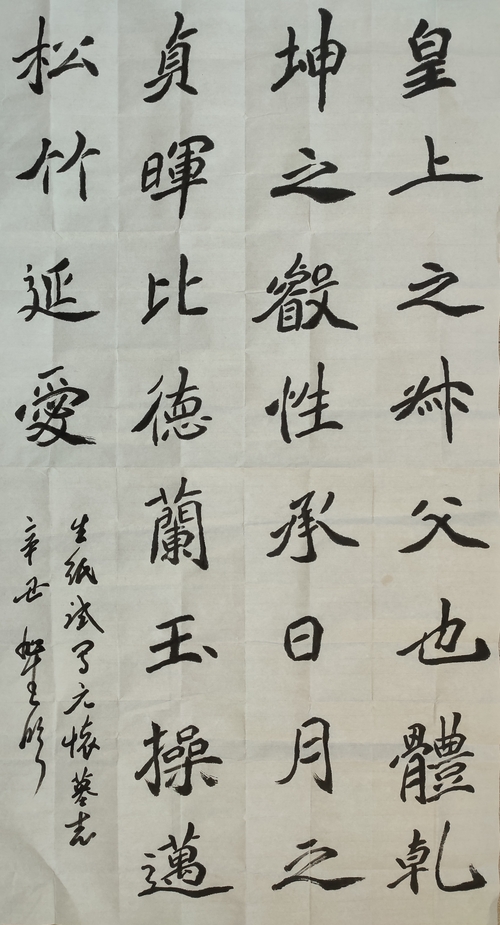 皇上之叔父也體乾
坤之叡性承日月之
貞暉比德蘭玉操邁
松竹延愛
生紙試写元懷墓志
辛丑